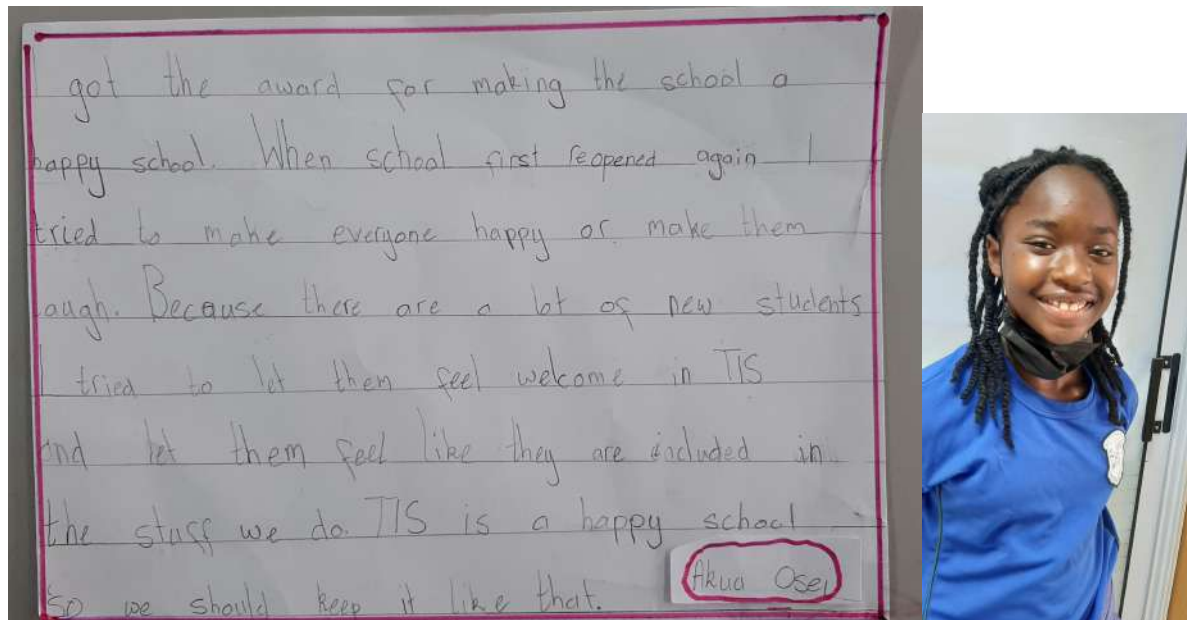 I got the award for making the school a
happy school. When school first reopened again I
tried to make everyone happy or make them
laugh. Because there are a lot of new students
I tried to let them feel welcome in TIS
and let them feel like they are included in
the stuff we do. TIS is a happy school
so we should keep it like that.
Akua Osei